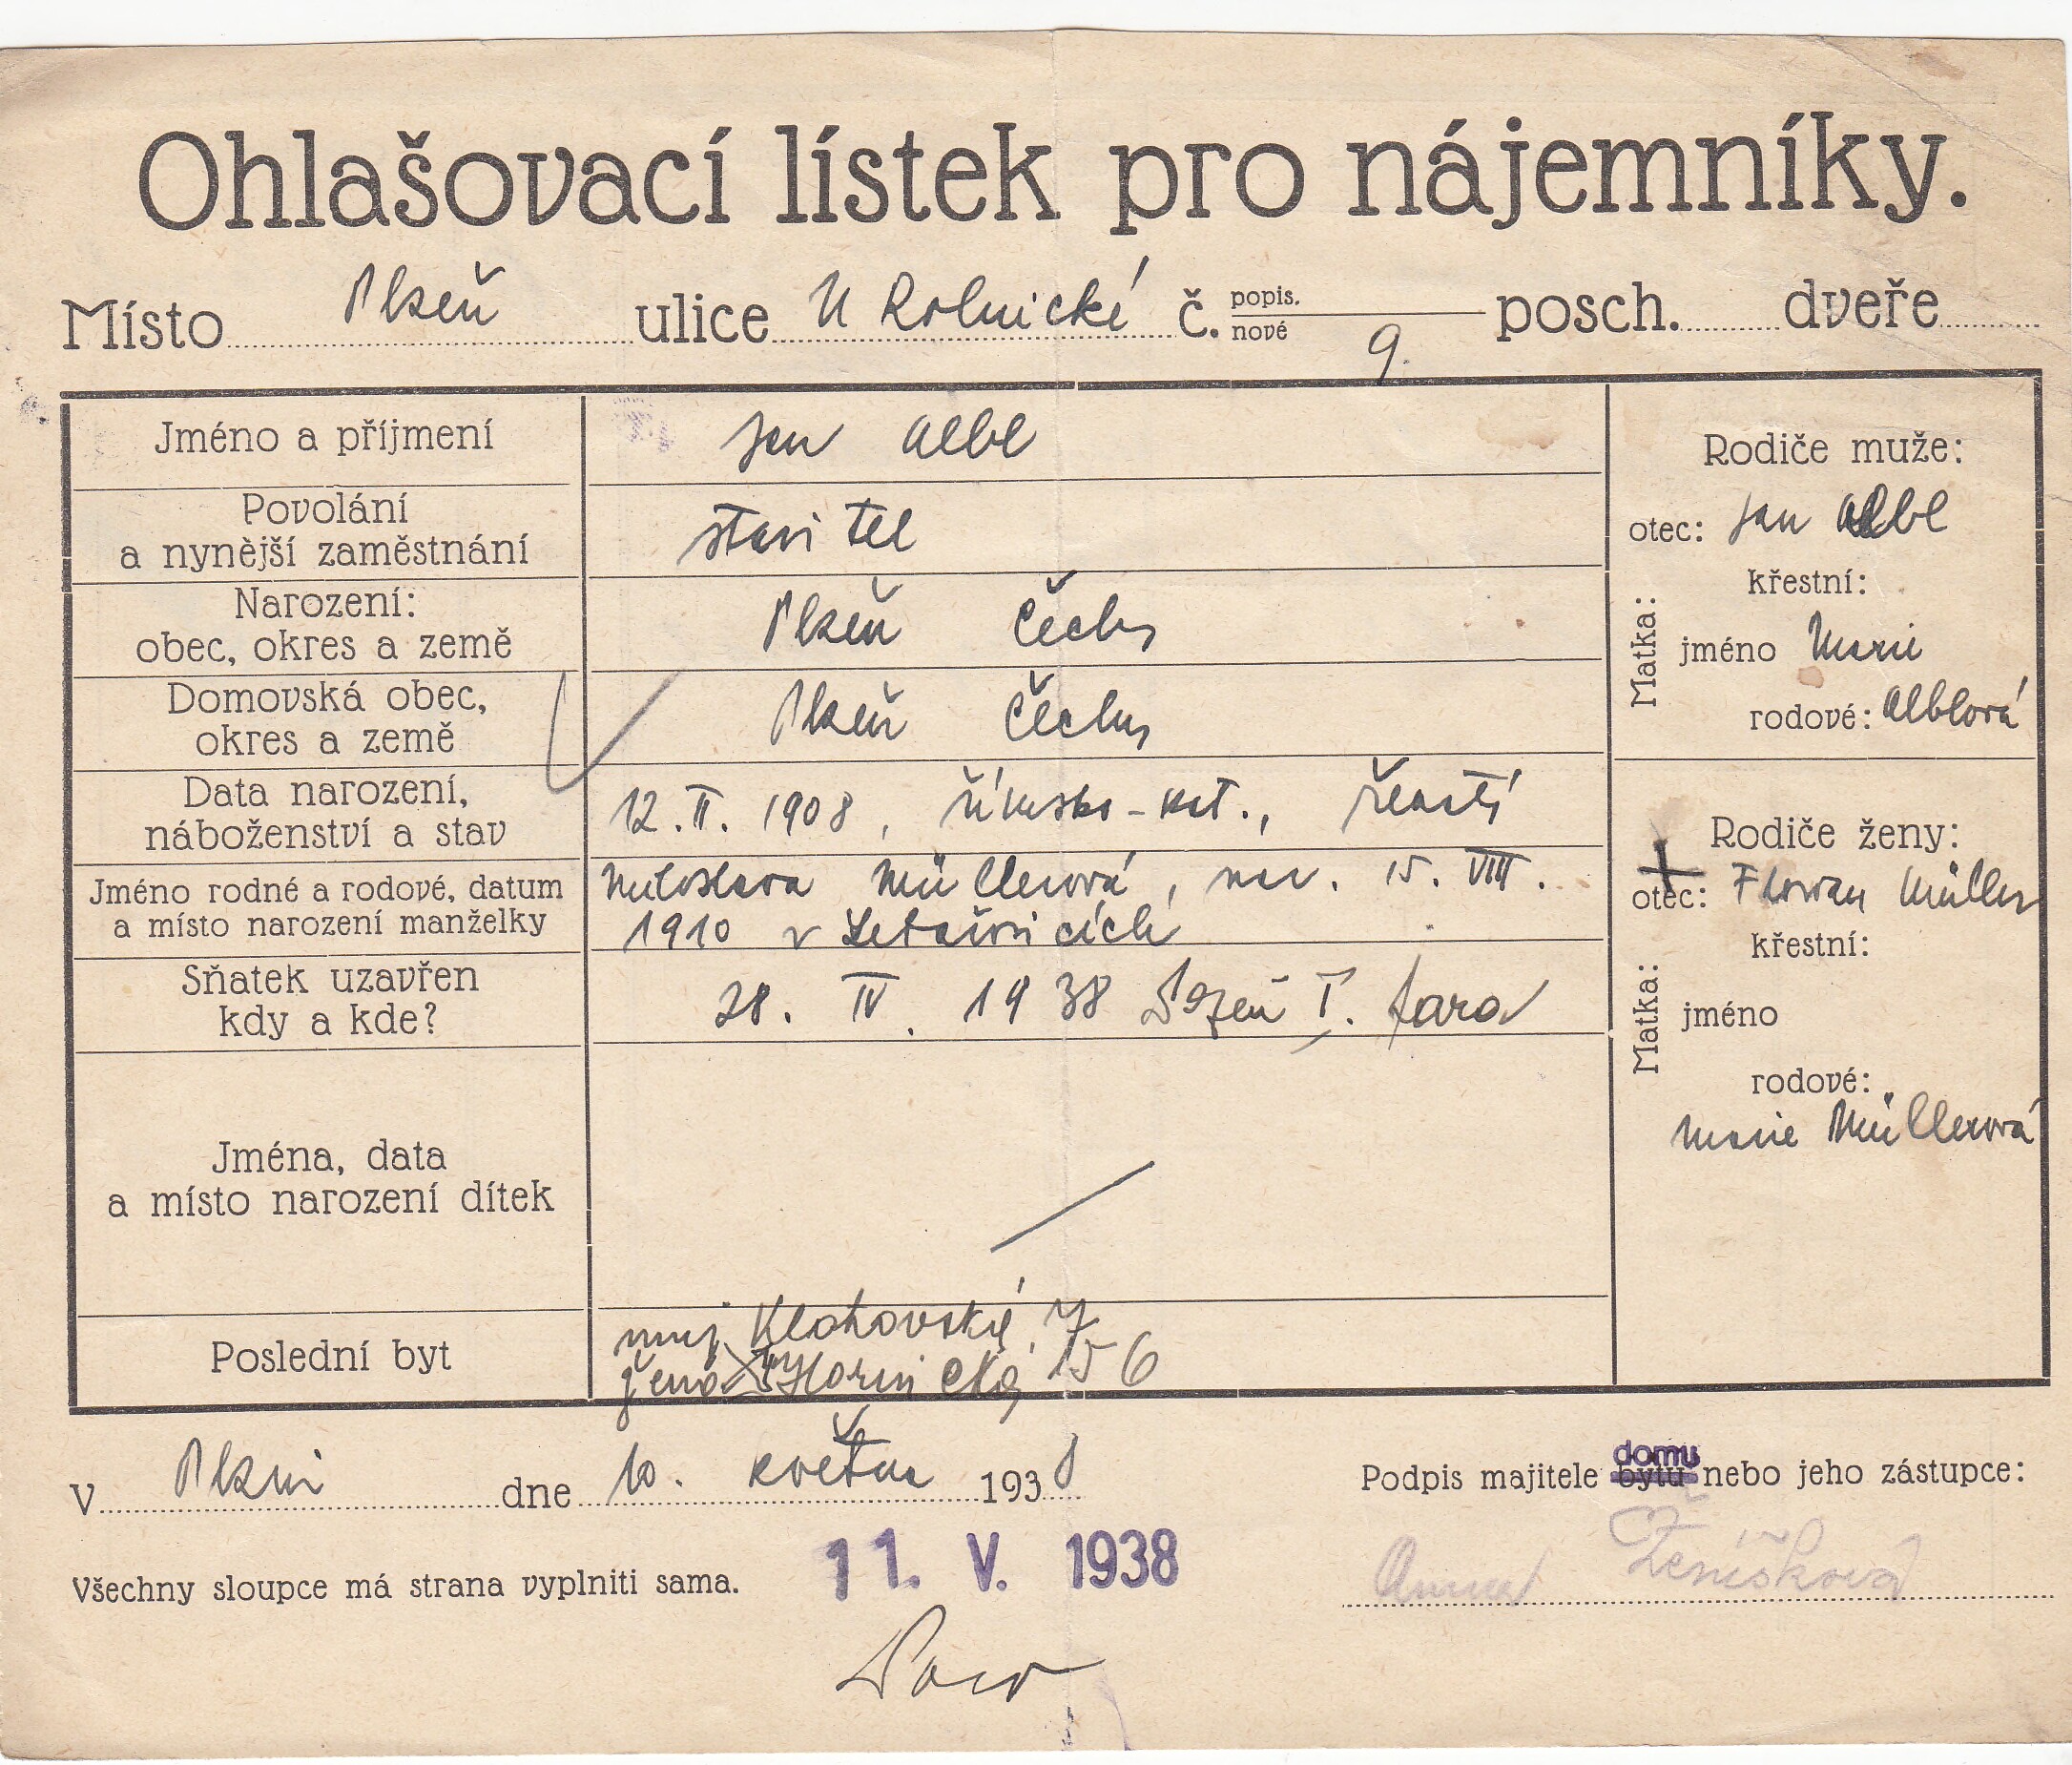 Ohlašovací lístek pro nájemníky.
Místo Plzeň ulice U Rolnické č. popis. nové 9. posch. dveře
Jméno a příjmení Jan Albl
Povolání
a nynější zaměstnání stavitel
Narození:
obec, okres a země Plzeň Čechy
Domovská obec,
okres a země Plzeň Čechy
Data narození,
náboženství a stav 12. II. 1908, římsko-kat., ženatý
Jméno rodné a rodové, datum
a místo narození manželky
Miloslava Müllerová, nar. 15. VIII.
1910 v
Sňatek uzavřen
kdy a kde? 28. IV. 1938 Plzeň I. fara
Jména, data
a místo narození dítek
Poslední byt
muž Klatovská 7
žena Hornická 156
Rodiče muže:
otec: Jan Albl
Matka:
křestní:
jméno Marie
rodové: Alblová
Rodiče ženy:
otec: Florian Müller
Matka:
křestní:
jméno
rodové:
Marie Müllerová
V Plzni dne 10. května 1938
Podpis majitele bytu domu nebo jeho zástupce:
Anna Ženíšková
Všechny sloupce má strana vyplniti sama.
11. V. 1938